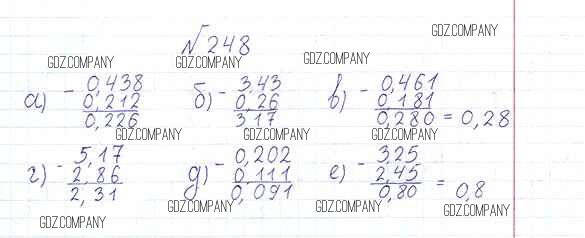 № 248
GDZ.COMPANY
GDZ.COMPANY GDZ.COMPANY GDZ.COMPANY
а) - 0,438 б) - 3,43 в) - 0,461
0,212 0,26 0,181
0,226 3,17 0,280 = 0,28
GDZ.COMPANY GDZ.COMPANY GDZ.COMPANY
г) - 5,17 д) - 0,202 е) - 3,25
2,86 0,111 2,45
2,31 0,091 0,80 = 0,8
GDZ.COMPANY GDZ.COMPANY GDZ.COMPANY
GDZ.COMPANY